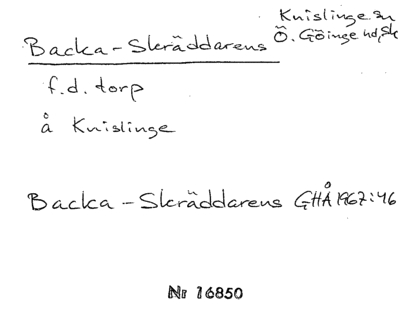 Knislinge sn
Backa-Skräddarens Ö. Göinge hd, Sk
f.d. torp
å Knislinge
Backa-Skräddarens GHÅ 1967:46
Nr 16850